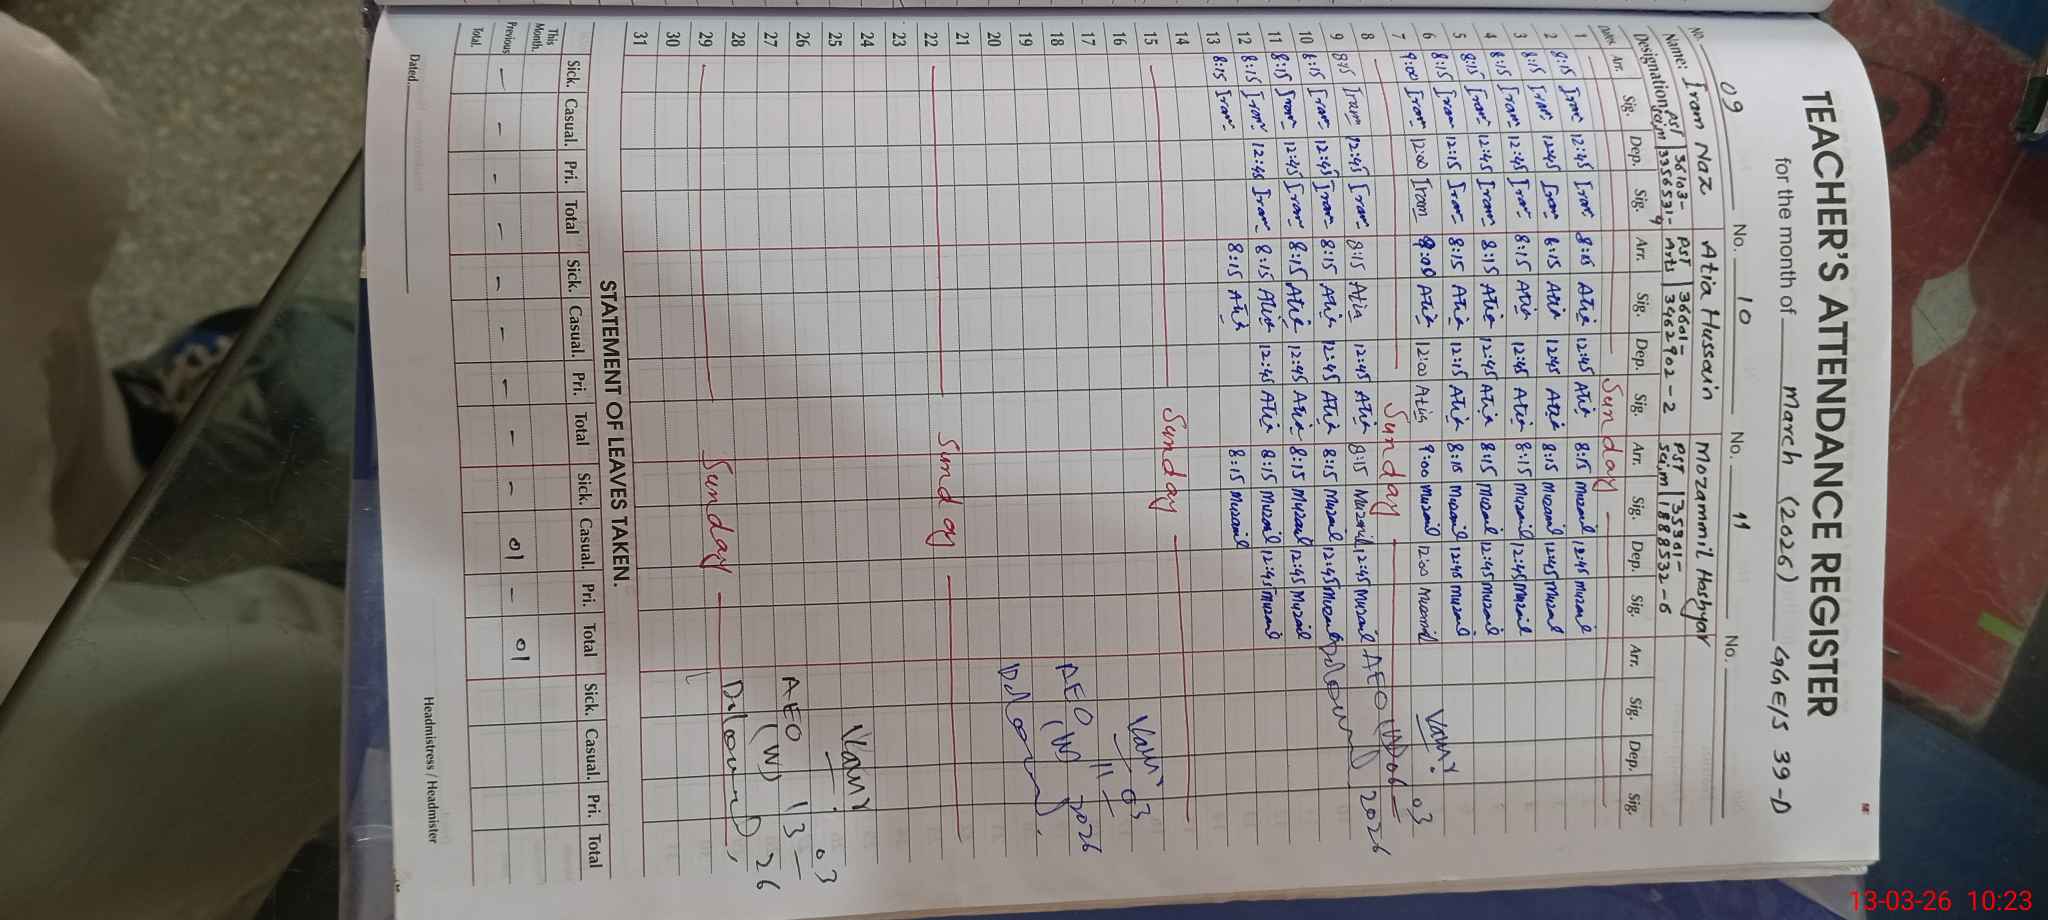 TEACHER'S ATTENDANCE REGISTER
for the month of March (2026) GGE/S 39-D
No. 09 No. 10 No. 11 No.
Name: Iram Naz Atia Hussain Mozammil Hashyar
Designation: PST PST 36601- PST 35301-
Arts 3462902-2 1888532-6
Date. Arr. Sig. Dep. Sig. Arr. Sig. Dep. Sig. Arr. Sig. Dep. Sig. Arr. Sig. Dep. Sig.
1 Sunday
2 8:15 Iram 12:45 Iram 8:15 Atia 12:45 Atia 8:15 Muzamil 12:45 Muzamil
3 8:15 Iram 12:45 Iram 8:15 Atia 12:45 Atia 8:15 Muzamil 12:45 Muzamil
4 8:15 Iram 12:45 Iram 8:15 Atia 12:45 Atia 8:15 Muzamil 12:45 Muzamil
5 8:15 Iram 12:45 Iram 8:15 Atia 12:45 Atia 8:15 Muzamil 12:45 Muzamil
6 8:15 Iram 12:15 Iram 8:15 Atia 12:15 Atia 8:15 Muzamil 12:45 Muzamil
7 9:00 Iram 12:00 Iram 9:00 Atia 12:00 Atia 9:00 Muzamil 12:00 Muzamil
8 Sunday
9 8:15 Iram 12:45 Iram 8:15 Atia 12:45 Atia 8:15 Muzamil 12:45 Muzamil AEO (W) 2026
10 8:15 Iram 12:45 Iram 8:15 Atia 12:45 Atia 8:15 Muzamil 12:45 Muzamil
11 8:15 Iram 12:45 Iram 8:15 Atia 12:45 Atia 8:15 Muzamil 12:45 Muzamil
12 8:15 Iram 12:45 Iram 8:15 Atia 12:45 Atia 8:15 Muzamil 12:45 Muzamil
13 8:15 Iram 8:15 Atia 8:15 Muzamil
14
15 Sunday
16 11/03
17 2026
18 AEO (W)
19
20
21
22 Sunday
23
24
25
26 03
27 AEO 13
28 (W) 26
29 Sunday
30
31
STATEMENT OF LEAVES TAKEN.
Sick. Casual. Pri. Total Sick. Casual. Pri. Total Sick. Casual. Pri. Total Sick. Casual. Pri. Total
This Month.
Previous - - - - - - - - - 01 - 01
Total.
Dated.
Headmistress / Headmister
13-03-26 10:23